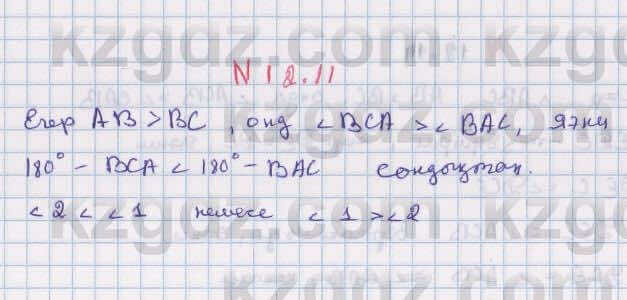 kzgdz.com
N 12.11
Егер AB > BC, онд <BCA > <BAC, яғни
180° - BCA < 180° - BAC сондықтан.
<2 < <1 немесе <1 > <2